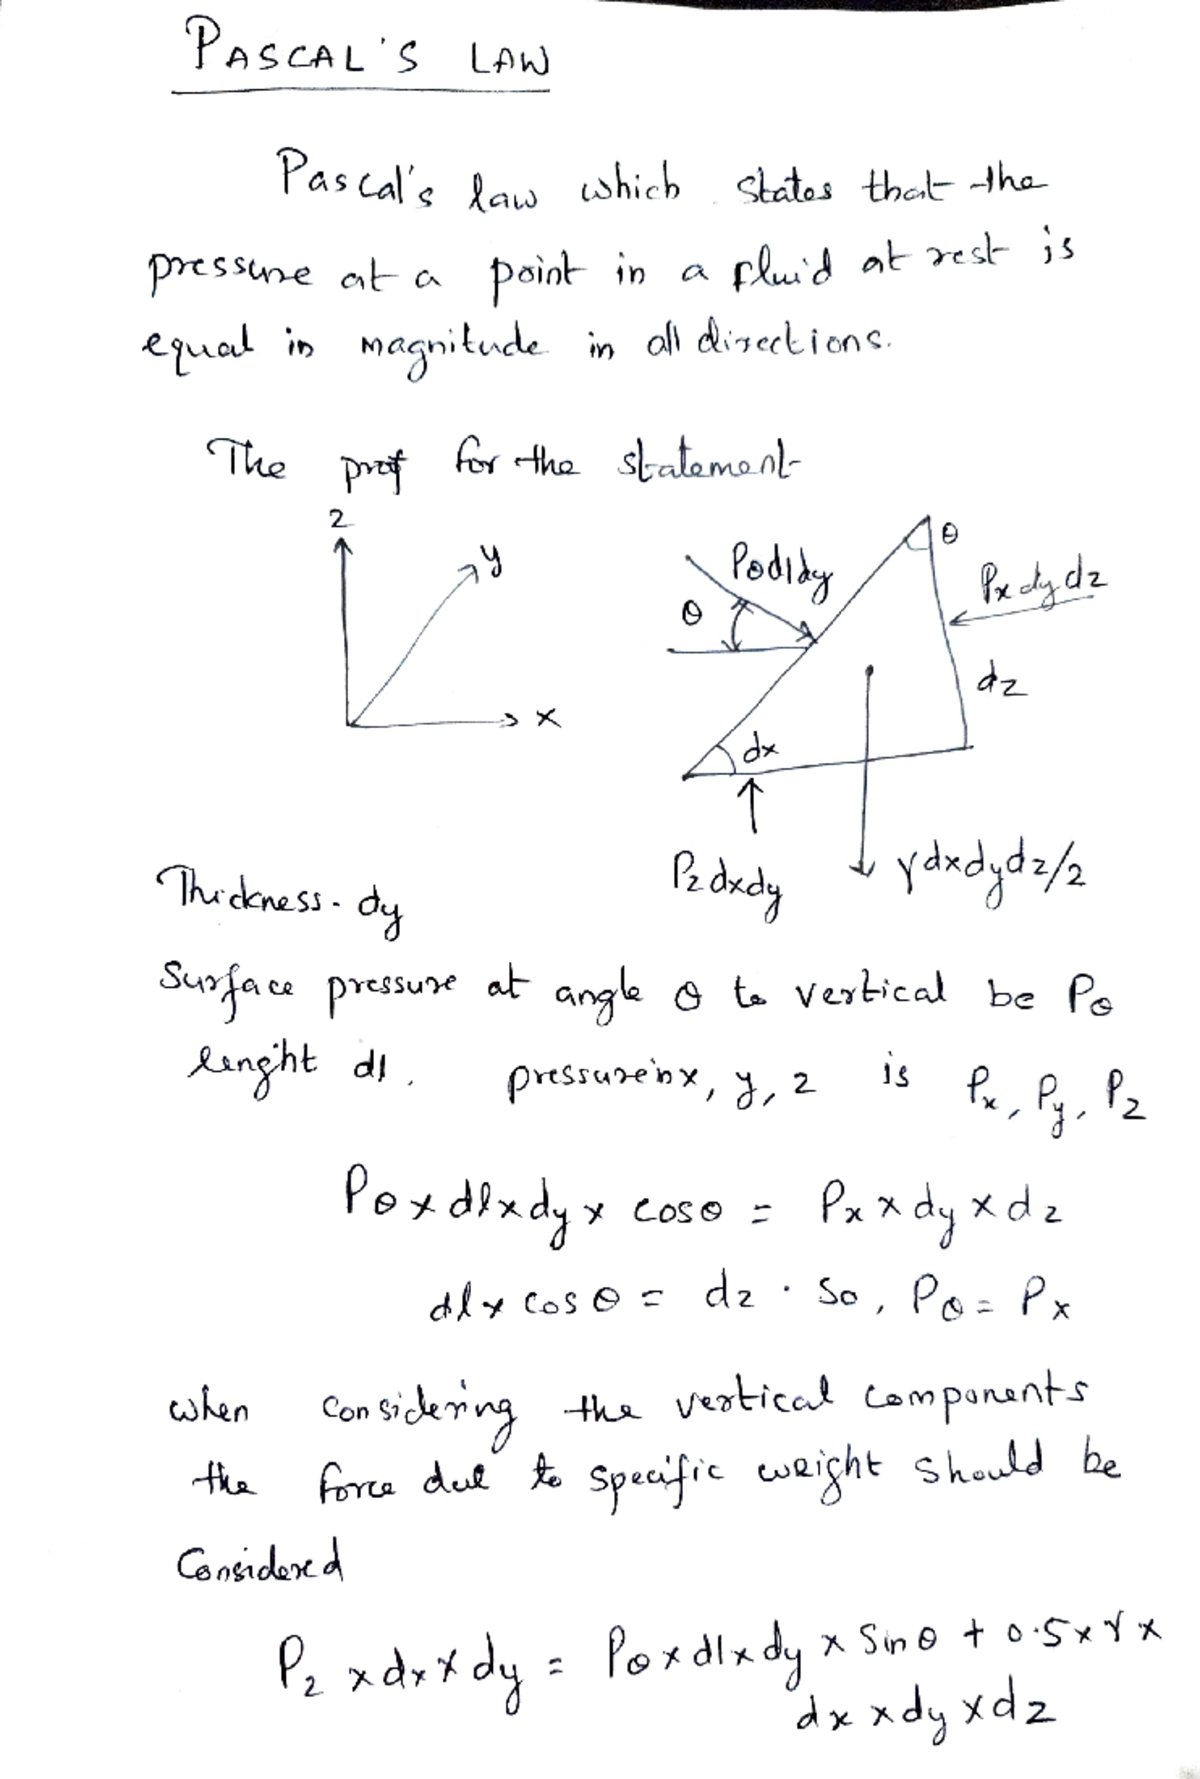 PASCAL'S LAW
Pascal's law which states that the
pressure at a point in a fluid at rest is
equal in magnitude in all directions.
The prof for the statement
z
y
x
Pθdldy
θ
θ
Px dy dz
dz
dx
Pz dxdy
γdxdydz/2
Thickness - dy
Surface pressure at angle θ to vertical be Pθ
lenght dl. pressure in x, y, z is Px, Py, Pz
Pθ x dl x dy x cosθ = Px x dy x dz
dl x cos θ = dz . So, Pθ = Px
when considering the vertical components
the force due to specific weight should be
Considered
Pz x dx x dy = Pθ x dl x dy x Sin θ + 0.5 x γ x
dx x dy x dz